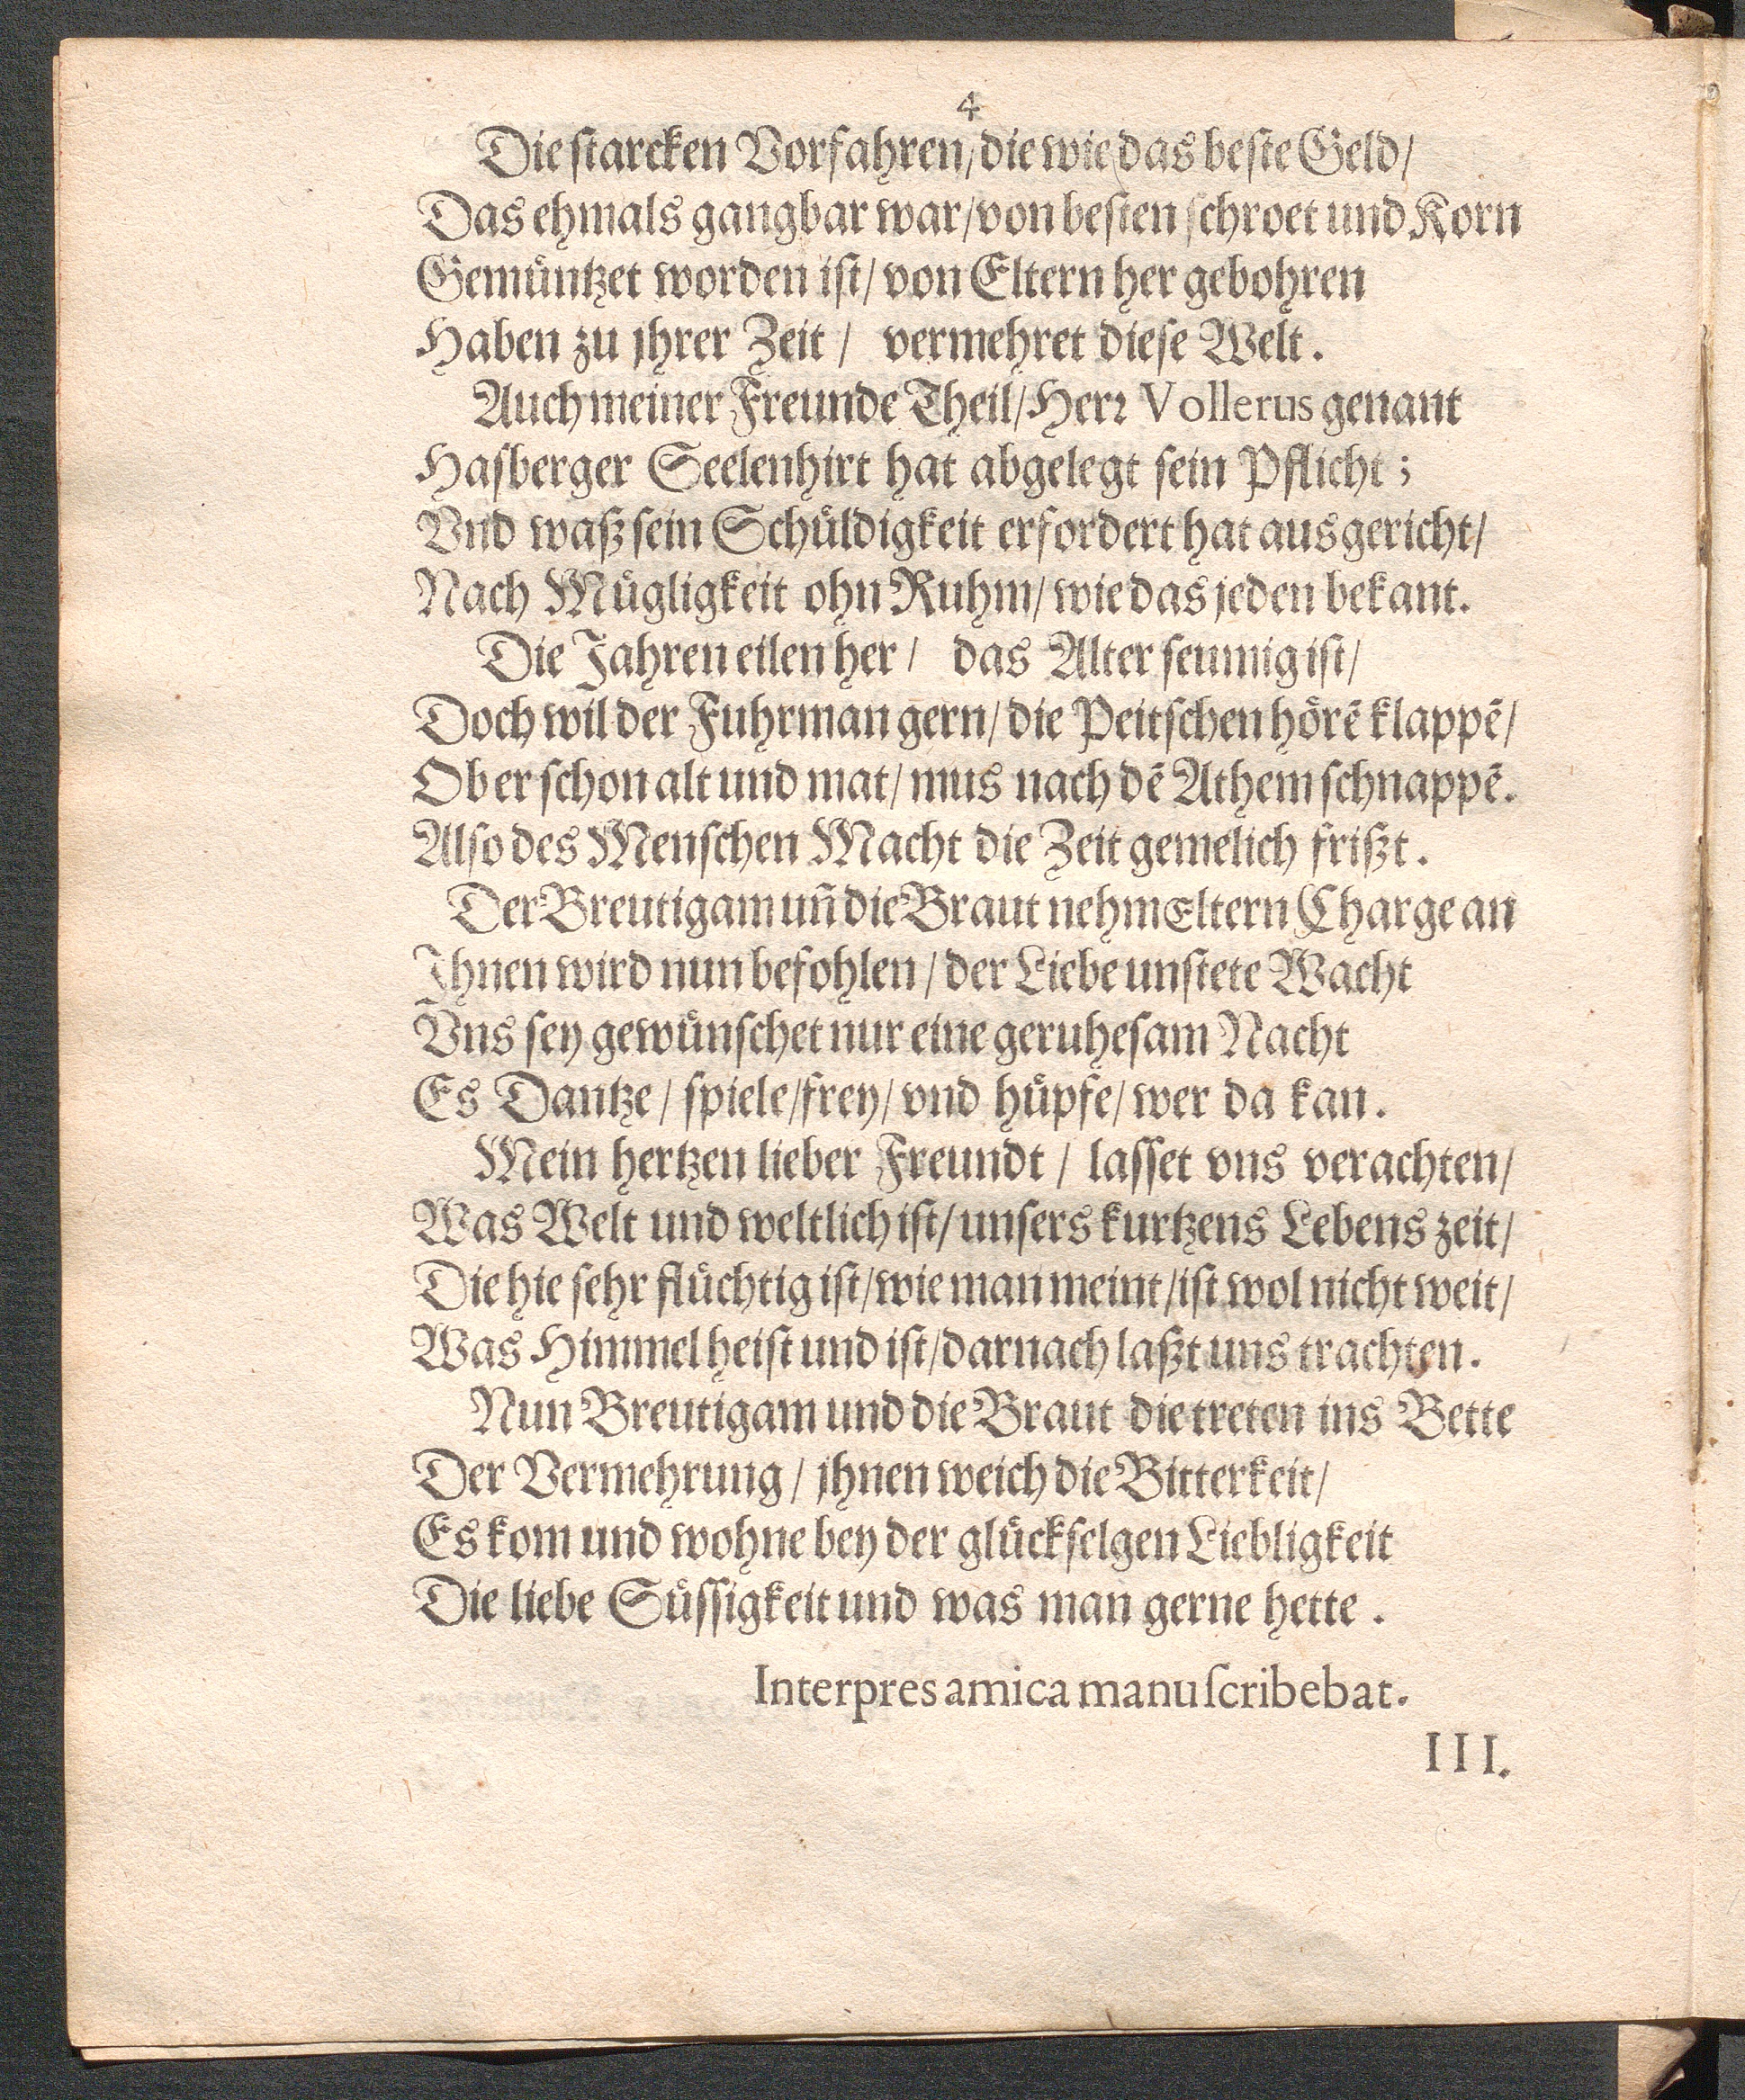 4
Die ſtarcken Vorfahren/ die wie das beſte Geld/
Das ehmals gangbar war/ von beſten ſchroet und Korn
Gemuͤntzet worden iſt/ von Eltern her gebohren
Haben zu jhrer Zeit / vermehret dieſe Welt.
Auch meiner Freunde Theil/ Herꝛ Vollerus genant
Haſberger Seelenhirt hat abgelegt ſein Pflicht;
Vnd waß ſein Schuͤldigkeit erfordert hat ausgericht/
Nach Muͤgligkeit ohn Ruhm/ wie das jeden bekant.
Die Jahren eilen her / das Alter ſeumig iſt/
Doch wil der Fuhrman gern/ die Peitſchen hoͤrē klappē/
Ob er ſchon alt und mat/ mus nach dē Athem ſchnappē.
Alſo des Menſchen Macht die Zeit gemelich frißt.
Der Breutigam uñ die Braut nehm Eltern Charge an
Ihnen wird nun befohlen / der Liebe unſtete Wacht
Vns ſey gewuͤnſchet nur eine geruheſam Nacht
Es Dantze / ſpiele/ frey/ vnd huͤpfe/ wer da kan.
Mein hertzen lieber Freundt / laſſet vns verachten/
Was Welt und weltlich iſt/ unſers kurtzens Lebens zeit/
Die hie ſehr fluͤchtig iſt/ wie man meint/ iſt wol nicht weit/
Was Himmel heiſt und iſt/ darnach laßt uns trachten.
Nun Breutigam und die Braut die treten ins Bette
Der Vermehrung / jhnen weich die Bitterkeit/
Es kom und wohne bey der gluͤckſelgen Liebligkeit
Die liebe Suͤſſigkeit und was man gerne hette.
Interpres amica manu ſcribebat.
III.